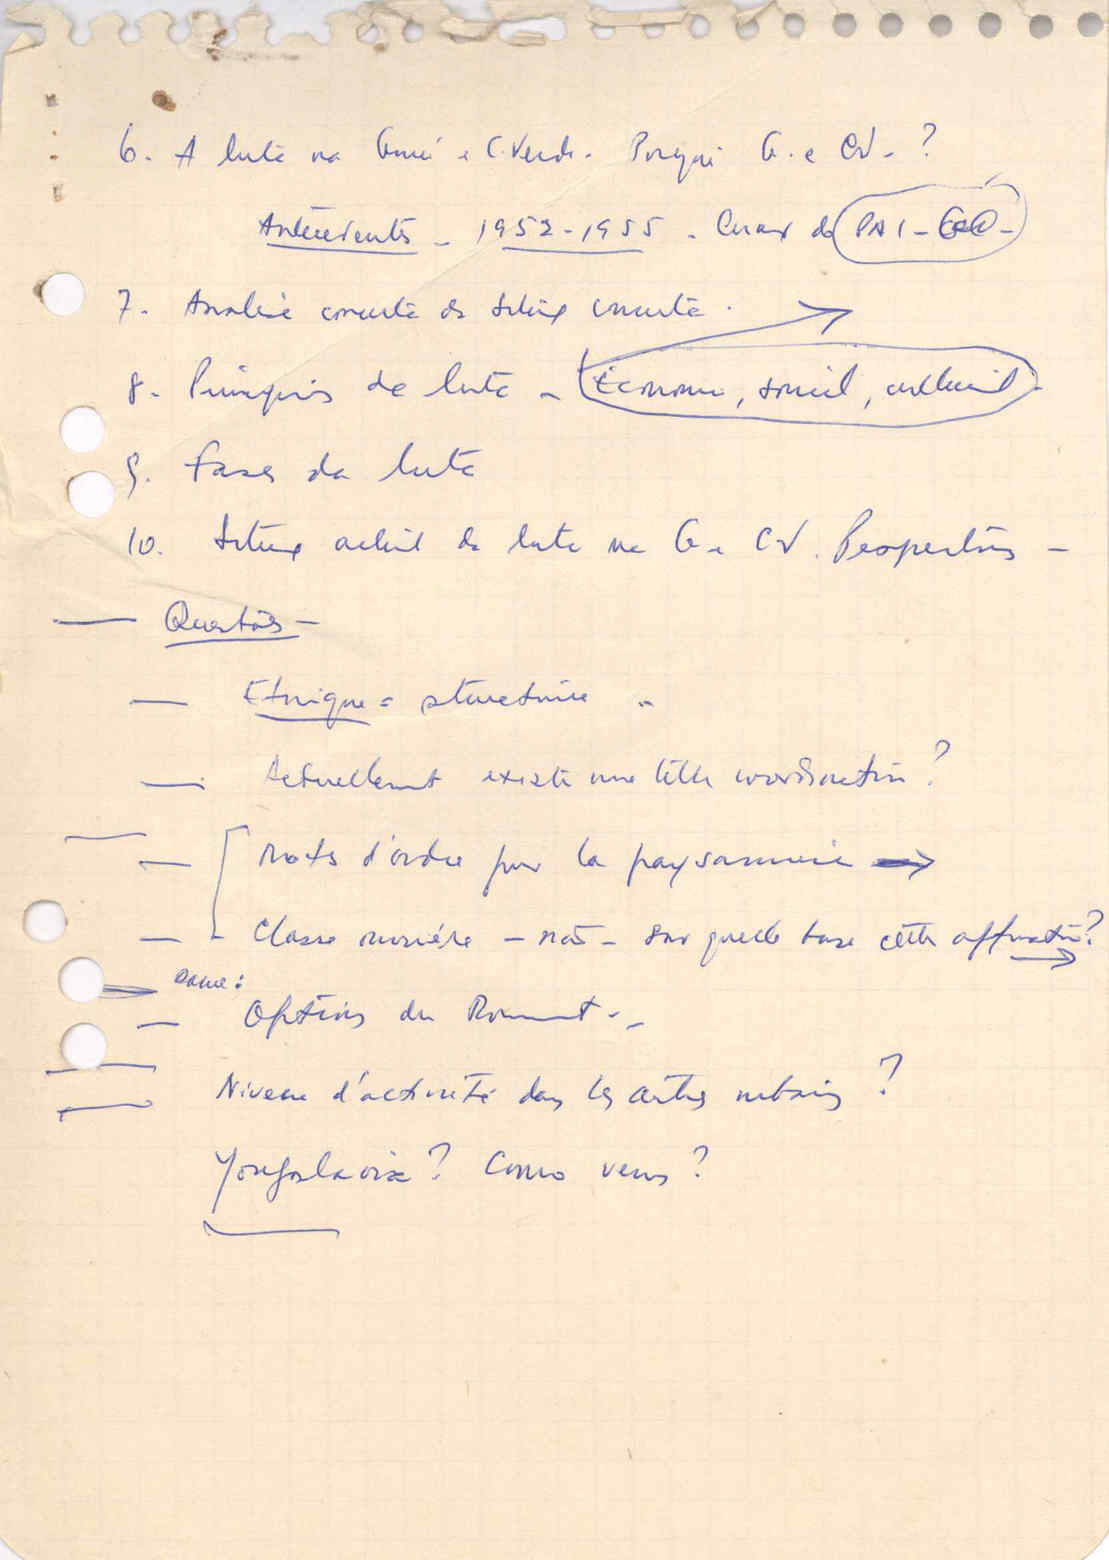 6. A luta na Guiné e C. Verde. Porquê G. e CV. ?
Antecedentes - 1952-1955 . Criaç do PAI -
7. Análise concreta da situaç concreta .
8. Princípios da luta - Économ, social, cultural
9. Fases da luta
10. Situaç actual da luta na G e CV. Perspectivas -
— Questões -
— Etnique = structure -
— Actuellement existe une telle coordination ?
— Mots d'ordre pour la paysannerie →
— Classe ouvrière - não - Sur quelle base cette affirmation ?
— Options du Mouvement -
Niveau d'activité dans les centres urbains ?
Yougoslavie ? Como vens ?